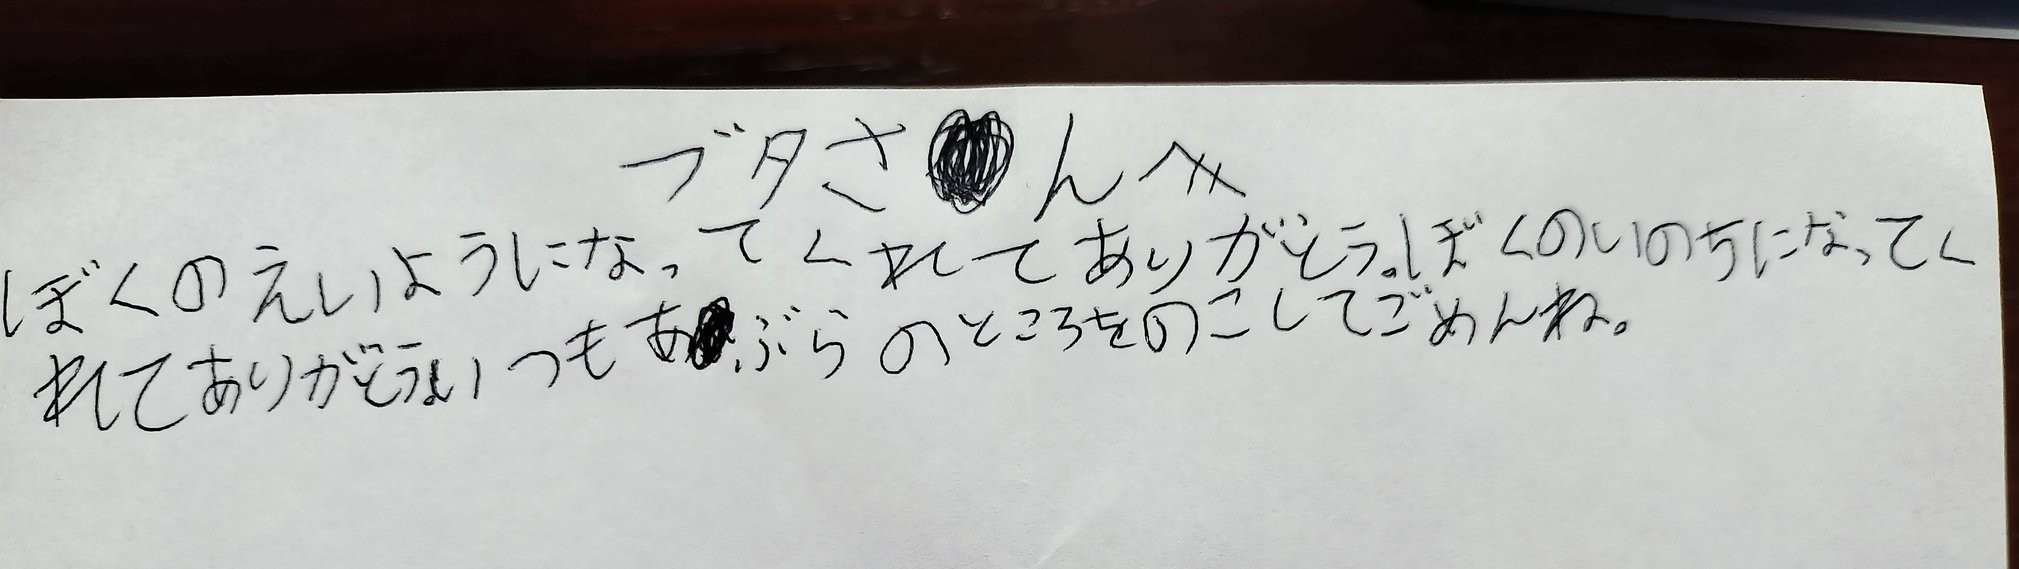 ブタさんへ
ぼくのえいようになってくれてありがとう。ぼくのいのちになってく
れてありがとう。いつもあぶらのところをのこしてごめんね。